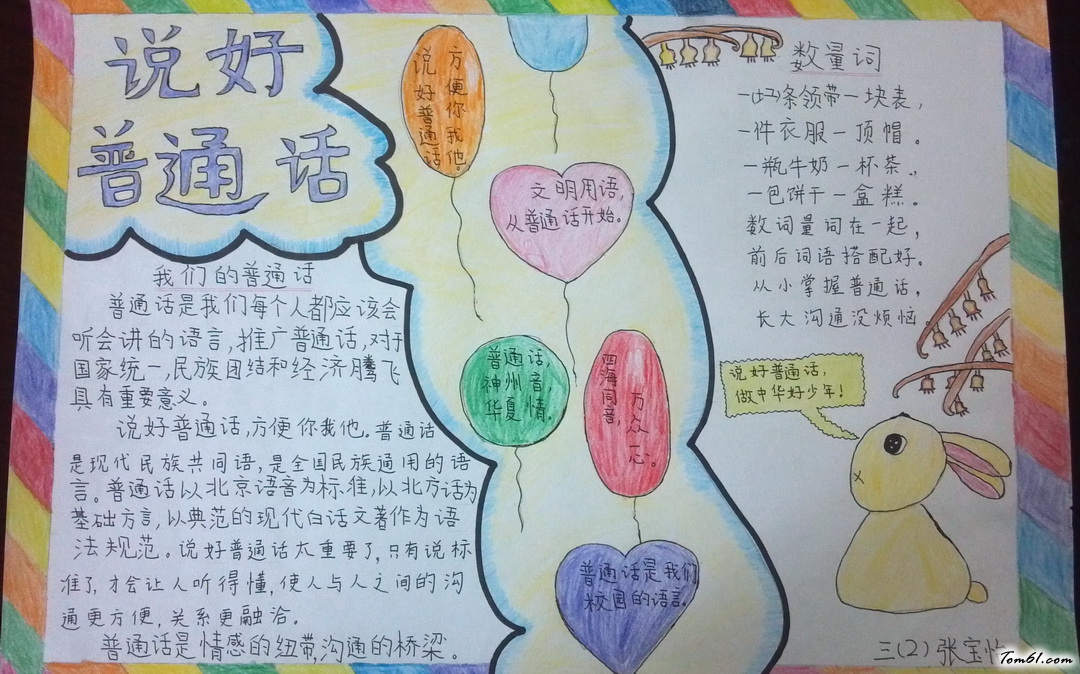 说好
普通话
我们的普通话
普通话是我们每个人都应该会
听会讲的语言,推广普通话,对于
国家统一,民族团结和经济腾飞
具有重要意义。
说好普通话,方便你我他。普通话
是现代民族共同语,是全国民族通用的语
言。普通话以北京语音为标准,以北方话为
基础方言,以典范的现代白话文著作为语
法规范。说好普通话太重要了,只有说标
准了,才会让人听得懂,使人与人之间的沟
通更方便,关系更融洽。
普通话是情感的纽带,沟通的桥梁。
说好普通话
方便你我他。
文明用语,
从普通话开始。
普通话,
神州音,
华夏情。
四海同音,
万众一心。
普通话是我们
校园的语言。
数量词
一条领带一块表,
一件衣服一顶帽。
一瓶牛奶一杯茶.,
一包饼干一盒糕。
数词量词在一起,
前后词语搭配好。
从小掌握普通话,
长大沟通没烦恼
说好普通话,
做中华好少年!
三(2)张宝
Tom61.com